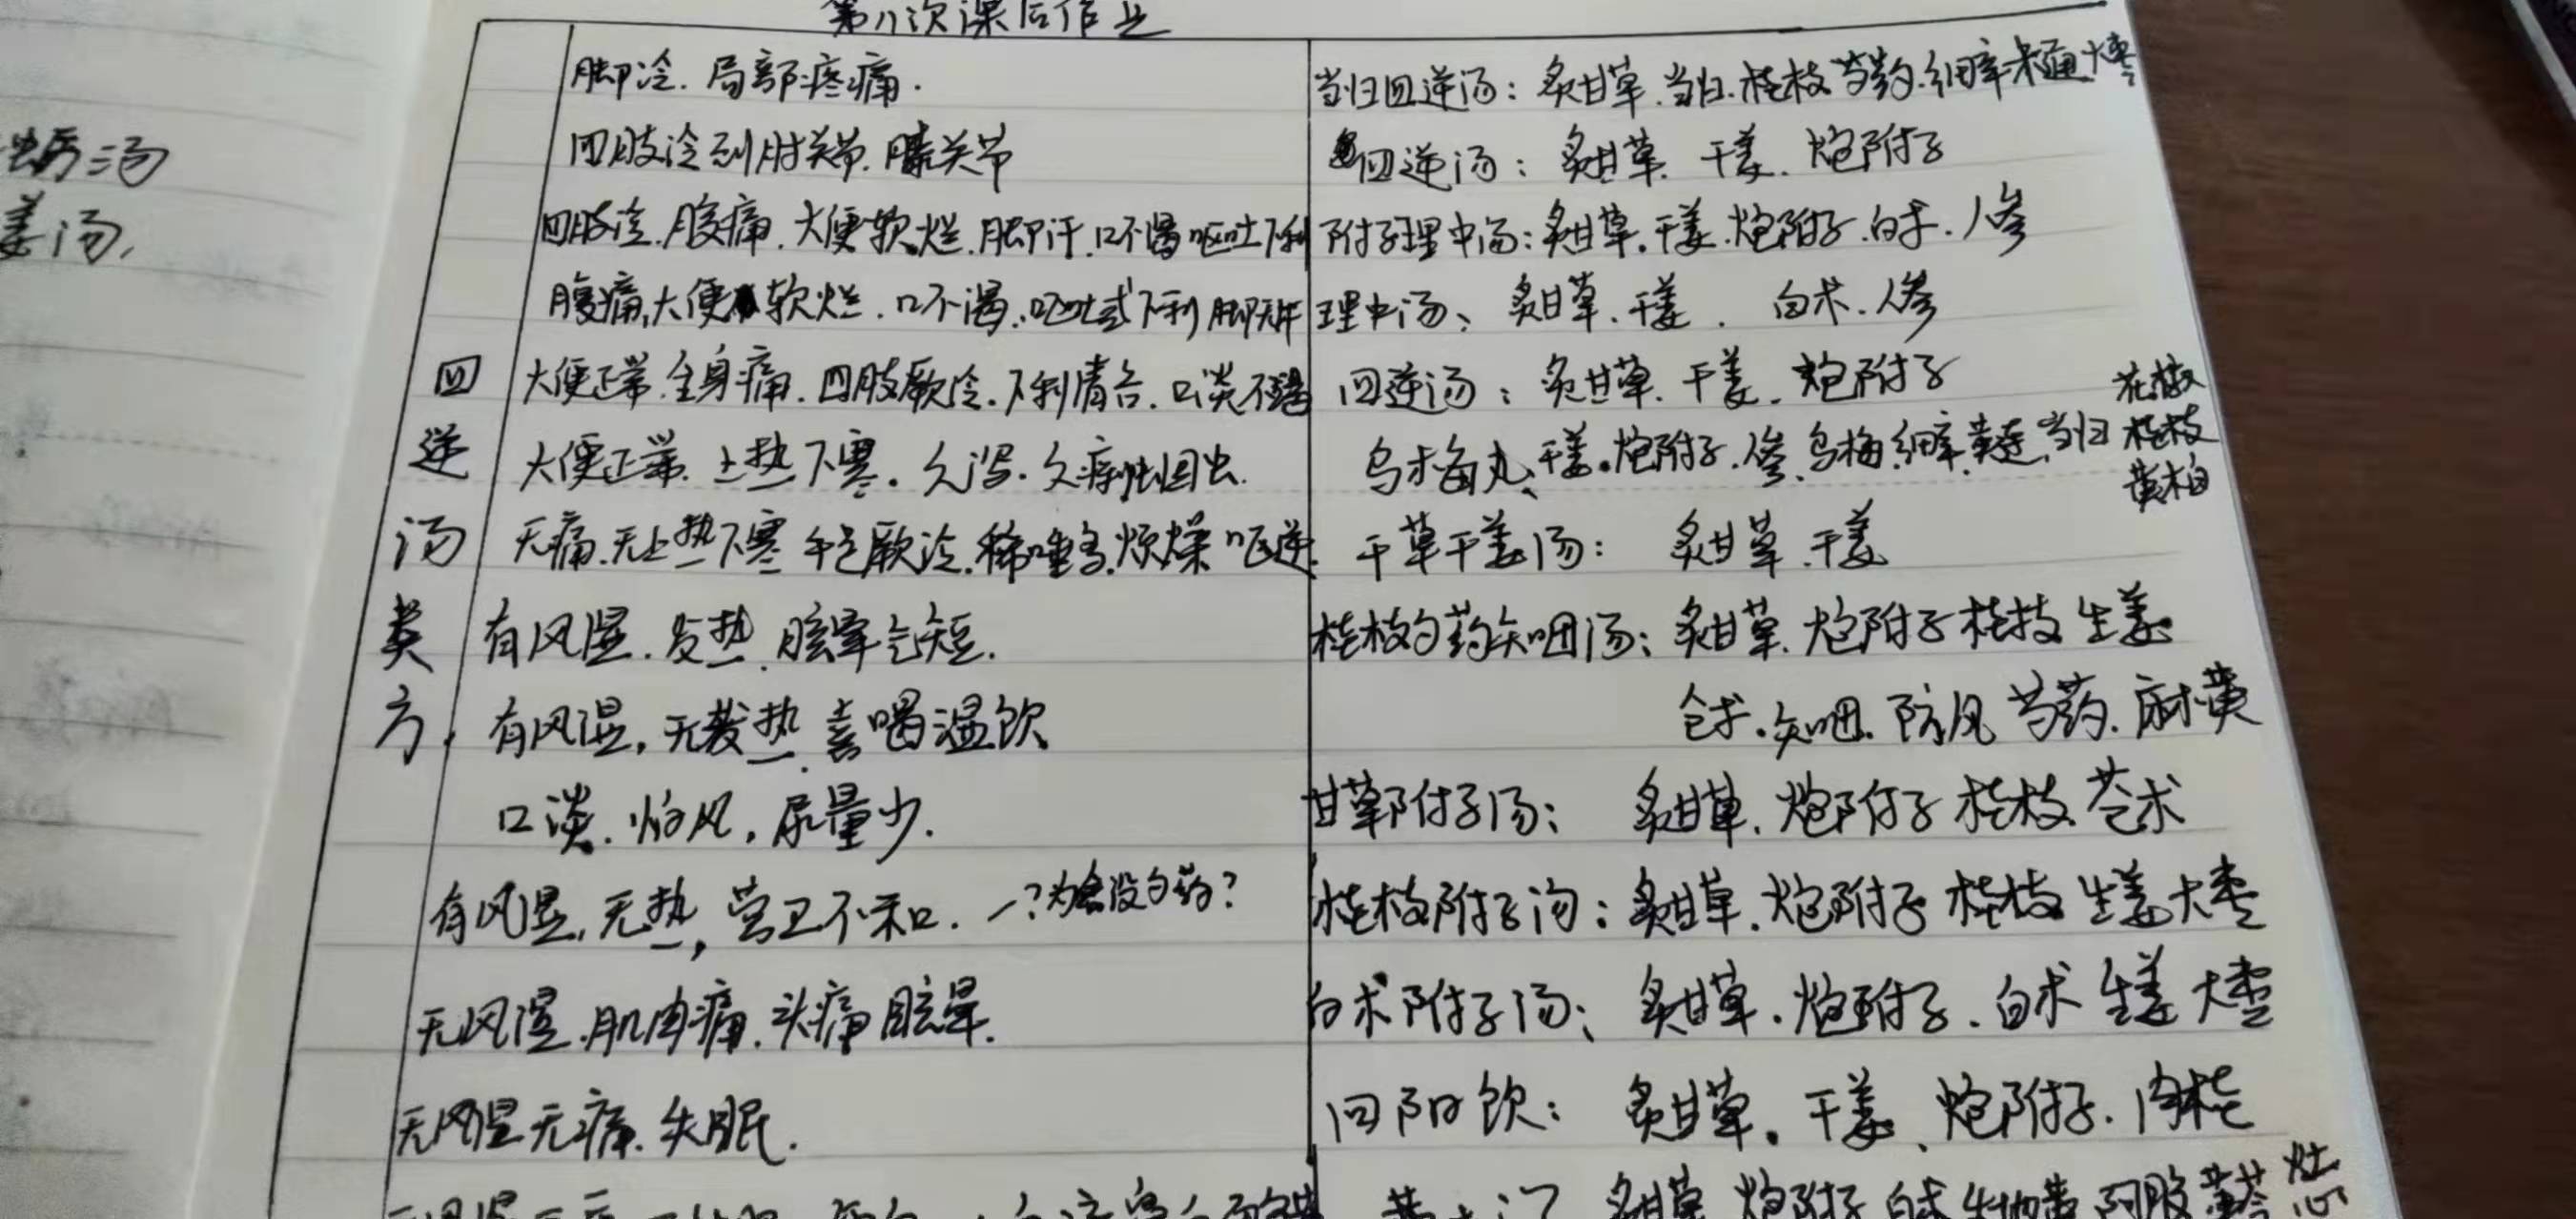 第11次课后作业
蛎汤
姜汤,
四逆汤类方.
脚冷.局部疼痛. 当归四逆汤:炙甘草.当归.桂枝 芍药.细辛 木通 大枣
四肢冷到肘关节.膝关节 四逆汤:炙甘草.干姜.炮附子
四肢冷.腹痛.大便软烂.脚汗.口不渴 呕吐下利 附子理中汤:炙甘草.干姜.炮附子.白术.人参
腹痛,大便软烂.口不渴.呕吐或下利 理中汤、炙甘草.干姜. 白术.人参
大便正常.全身痛.四肢厥冷.下利清谷.口淡不渴 四逆汤:炙甘草.干姜.炮附子
大便正常.上热下寒.久泻.久痢蛔虫. 乌梅丸、干姜.炮附子.人参.乌梅.细辛.黄连.当归 花椒 桂枝 黄柏
无痛.无上热下寒 手足厥冷.稀唾多.烦燥 呕逆. 干草干姜汤: 炙甘草.干姜
有风湿.发热.眩晕气短. 桂枝勺药知母汤:炙甘草.炮附子 桂枝 生姜
仓术.知母.防风 芍药.麻黄
有风湿,无发热.喜喝温饮
口淡.怕风,尿量少. 甘草附子汤: 炙甘草.炮附子 桂枝 苍术
有风湿,无热,营卫不和. 一?为啥没勺药? 桂枝附子汤:炙甘草.炮附子 桂枝 生姜 大枣
无风湿.肌肉痛.头痛 眩晕. 白术附子汤、炙甘草.炮附子.白术 生姜 大枣
无风湿 无痛.失眠. 回阳饮: 炙甘草.干姜、炮附子.肉桂
炙甘草 炮附子 白术 生地黄 阿胶 黄芩 灶心